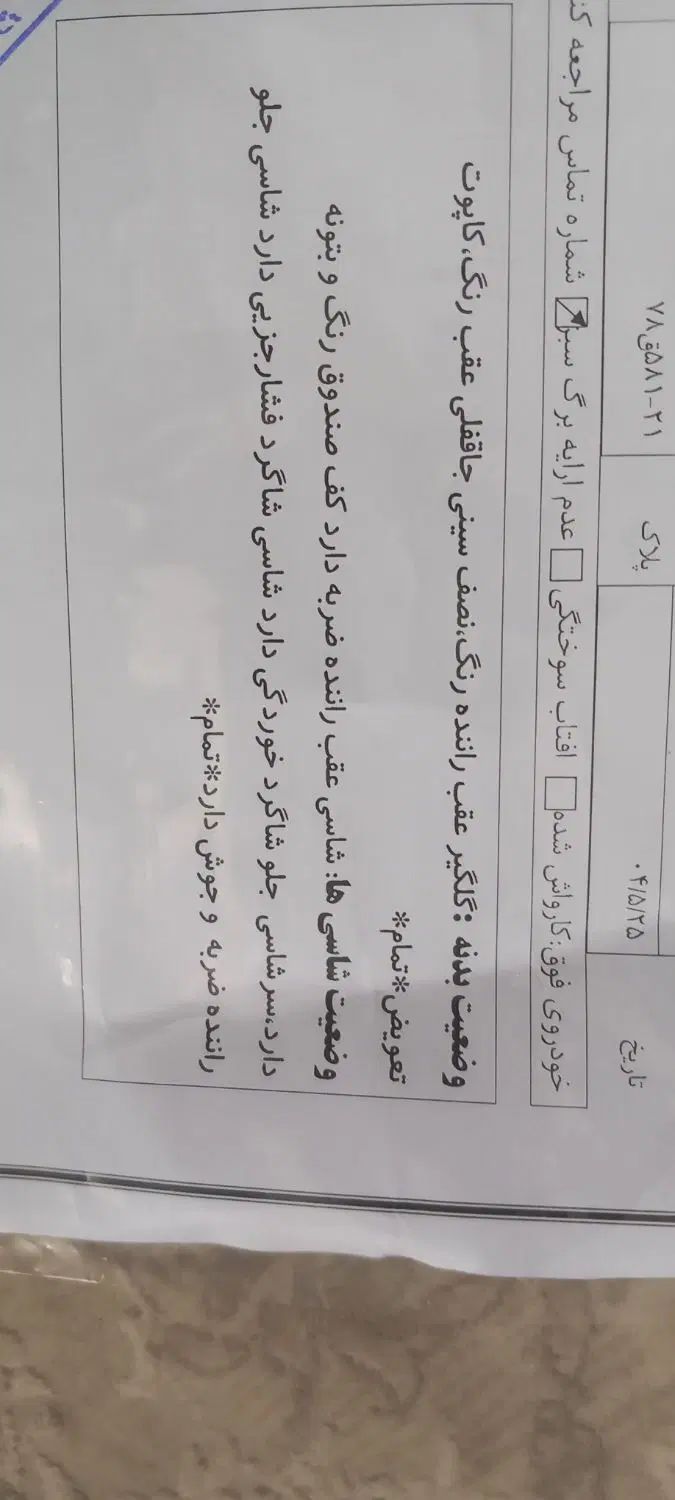 تاریخ ۰۴/۵/۲۵ پلاک ۵۸۱-۲۱ق۷۸
خودروی فوق:کارواش شده افتاب سوختگی عدم ارایه برگ سبز شماره تماس مراجعه
وضعیت بدنه :گلگیر عقب راننده رنگ،نصف سینی جاقفلی عقب رنگ،کاپوت
تعویض*تمام*
وضعیت شاسی ها: شاسی عقب راننده ضربه دارد کف صندوق رنگ و بتونه
دارد،سرشاسی جلو شاگرد خوردگی دارد شاسی شاگرد فشارجزیی دارد شاسی جلو
راننده ضربه و جوش دارد*تمام*